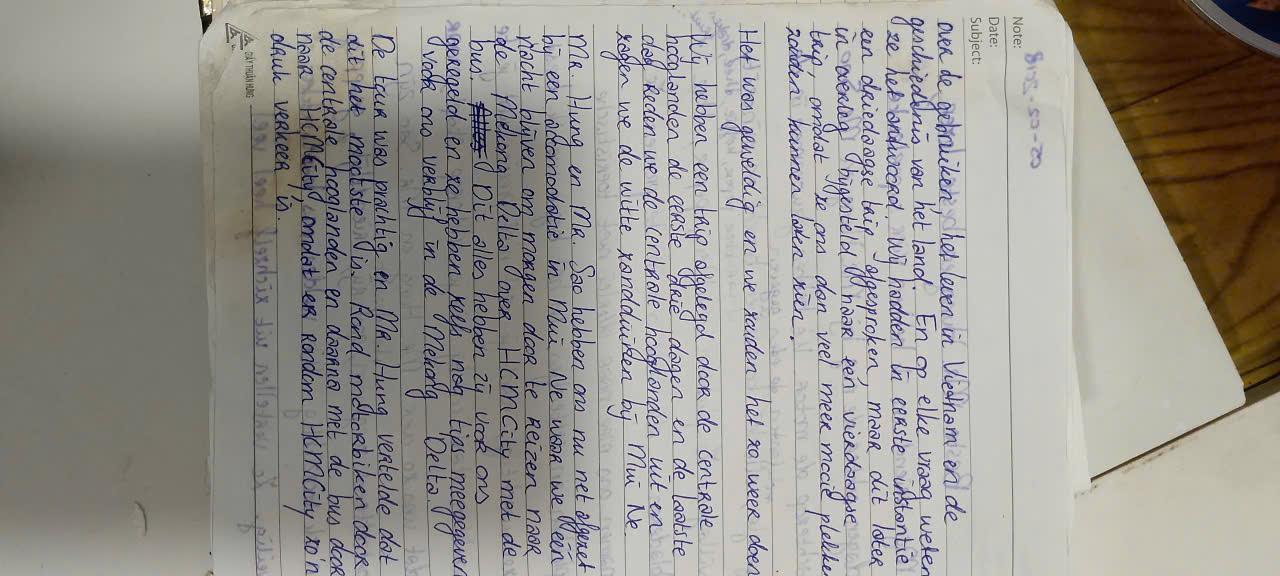 Note:
Date:
Subject:
over de gebruiken, het leven in Vietnam en de
geschiedenis van het land. En op elke vraag weten
ze het antwoord. Wij hadden in eerste instantie
een driedaagse trip afgesproken, maar dit later
in overleg bijgesteld naar een vierdaagse
trip, omdat ze ons dan veel meer mooie plekken
zouden kunnen laten zien.
Het was geweldig en we zouden het zo weer doen
Wij hebben een trip afgelegd door de centrale
hooglanden de eerste drie dagen en de laatste
dag reden we de centrale hooglanden uit en
zagen we de witte zandduinen bij Mui Ne.
Mr. Hung en Mr. Sac hebben ons nu net afgezet
bij een accomodatie in Mui Ne waar we één
nacht blijven om morgen door te reizen naar
de Mekong Delta over HCMCity met de
bus. Dit alles hebben zij voor ons
geregeld en ze hebben zelfs nog tips meegegeven
voor ons verblijf in de Mekong Delta.
De tour was prachtig en Mr. Hung vertelde dat
dit het mooiste is. Rond motorbiken door
de centrale hooglanden en daarna met de bus door
naar HCMCity, omdat er rondom HCMCity zo'n
druk verkeer is.